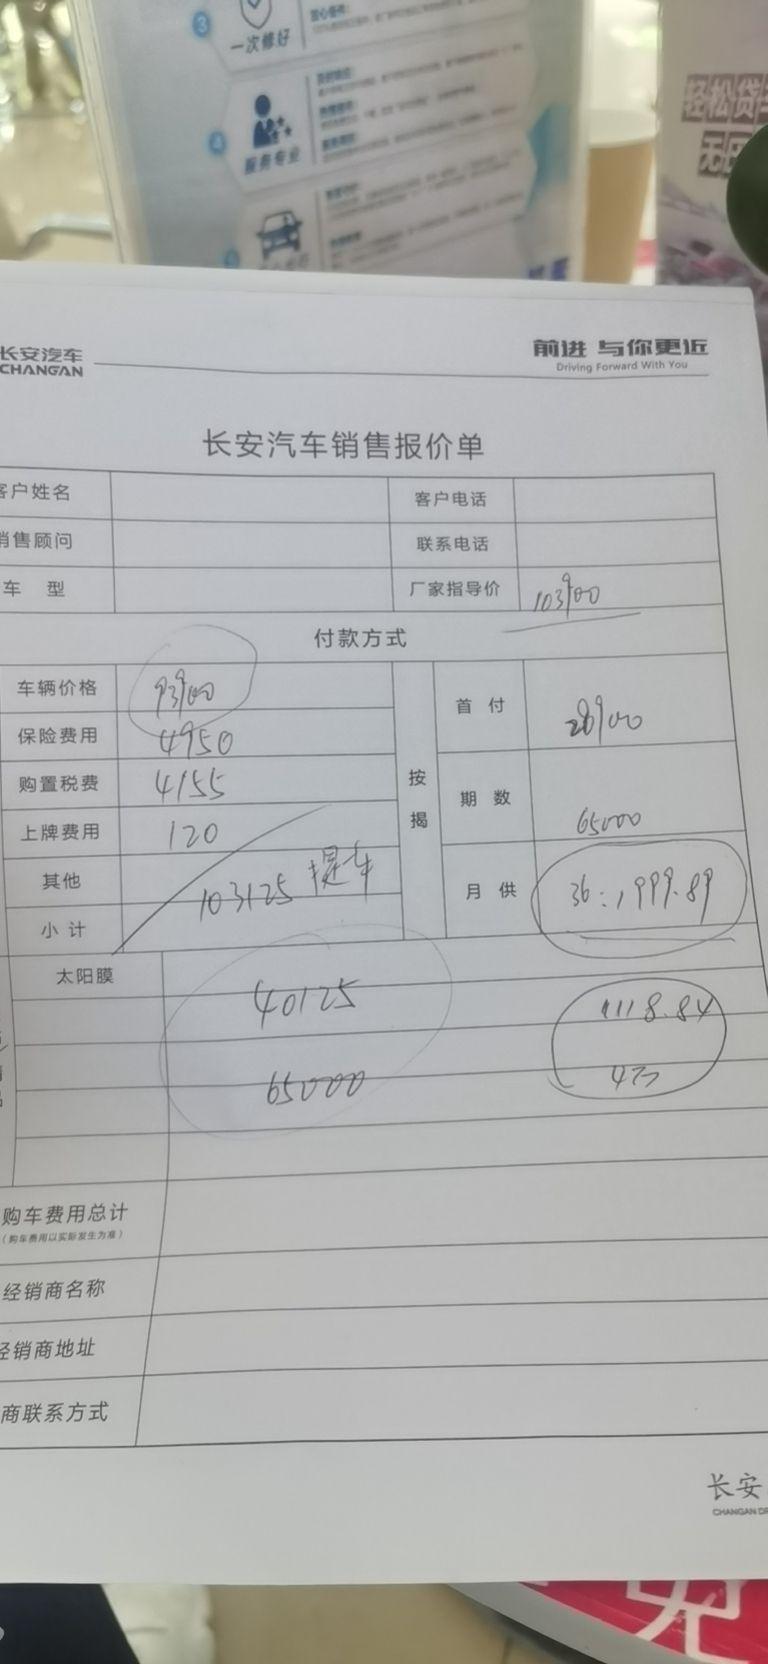 3
一次修好
4
服务专业
轻松贷
长安汽车
CHANGAN
前进 与你更近
Driving Forward With You
长安汽车销售报价单
客户姓名 客户电话
销售顾问 联系电话
车 型 厂家指导价 103900
付款方式
车辆价格 93900 按揭 首 付 28900
保险费用 4950
购置税费 4155 期 数 65000
上牌费用 120
其他 103125 提车 月 供 36:1999.89
小计
太阳膜
40125 1118.84
65000
购车费用总计
(购车费用以实际发生为准)
经销商名称
经销商地址
商联系方式
长安
CHANGAN